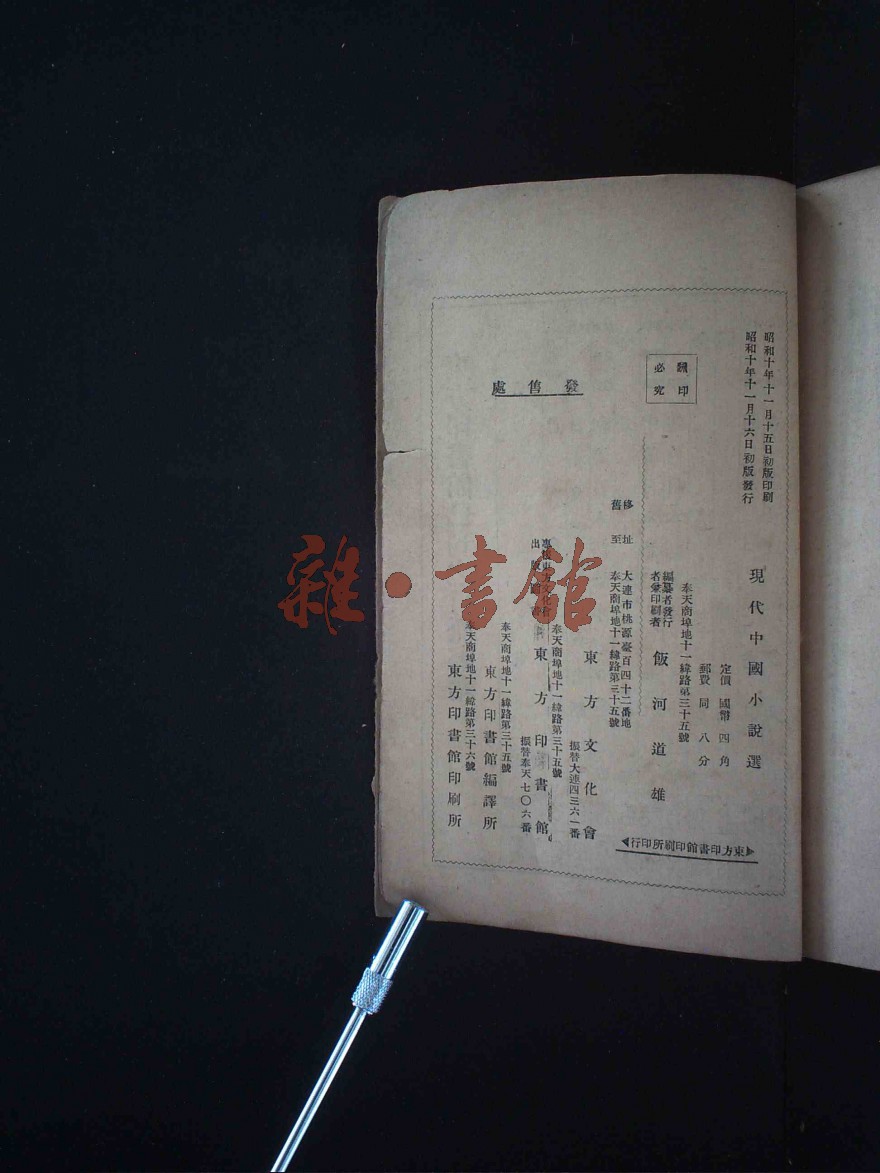 昭和十年十一月十五日初版印刷
昭和十年十一月十六日初版發行
翻印
必究
現代中國小說選
定價 國幣四角
郵費 同 八分
奉天商埠地十一緯路第三十五號
編纂者發行
者兼印刷者
飯河道雄
發售處
移址
舊至
大連市桃源臺百四十二番地
奉天商埠地十一緯路第三十五號
東方文化會
振替大連四三六一番
出版
奉天商埠地十一緯路第三十五號
東方印書館
振替奉天七〇六番
奉天商埠地十一緯路第三十五號
東方印書館編譯所
奉天商埠地十一緯路第三十六號
東方印書館印刷所
東方印書館印刷所印行
雜·書館